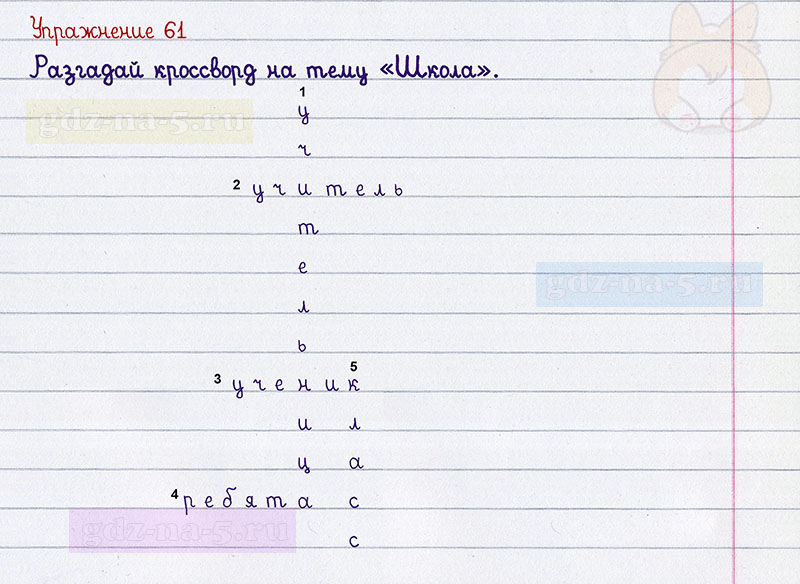 Упражнение 61
Разгадай кроссворд на тему «Школа».
1
у
gdz-na-5.ru
ч
2 учитель
т
е
gdz-na-5.ru
л
ь
5
3 ученик
и л
ц а
4 ребята с
gdz-na-5.ru
с